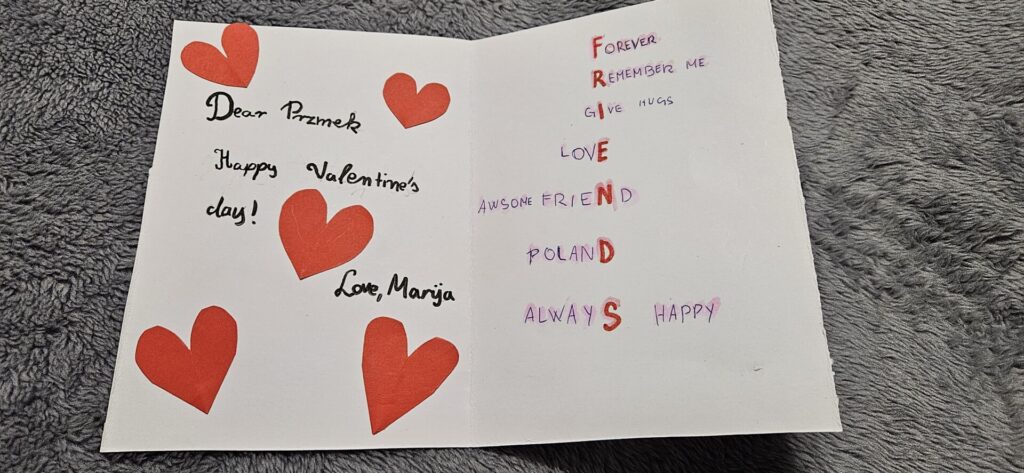 Dear Przmek
Happy Valentine's
day!
Love, Marija
FOREVER
REMEMBER ME
GIVE HUGS
LOVE
AWSOME FRIEND
POLAND
ALWAYS HAPPY